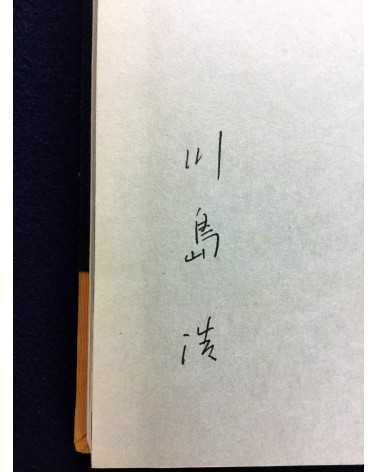 川島浩